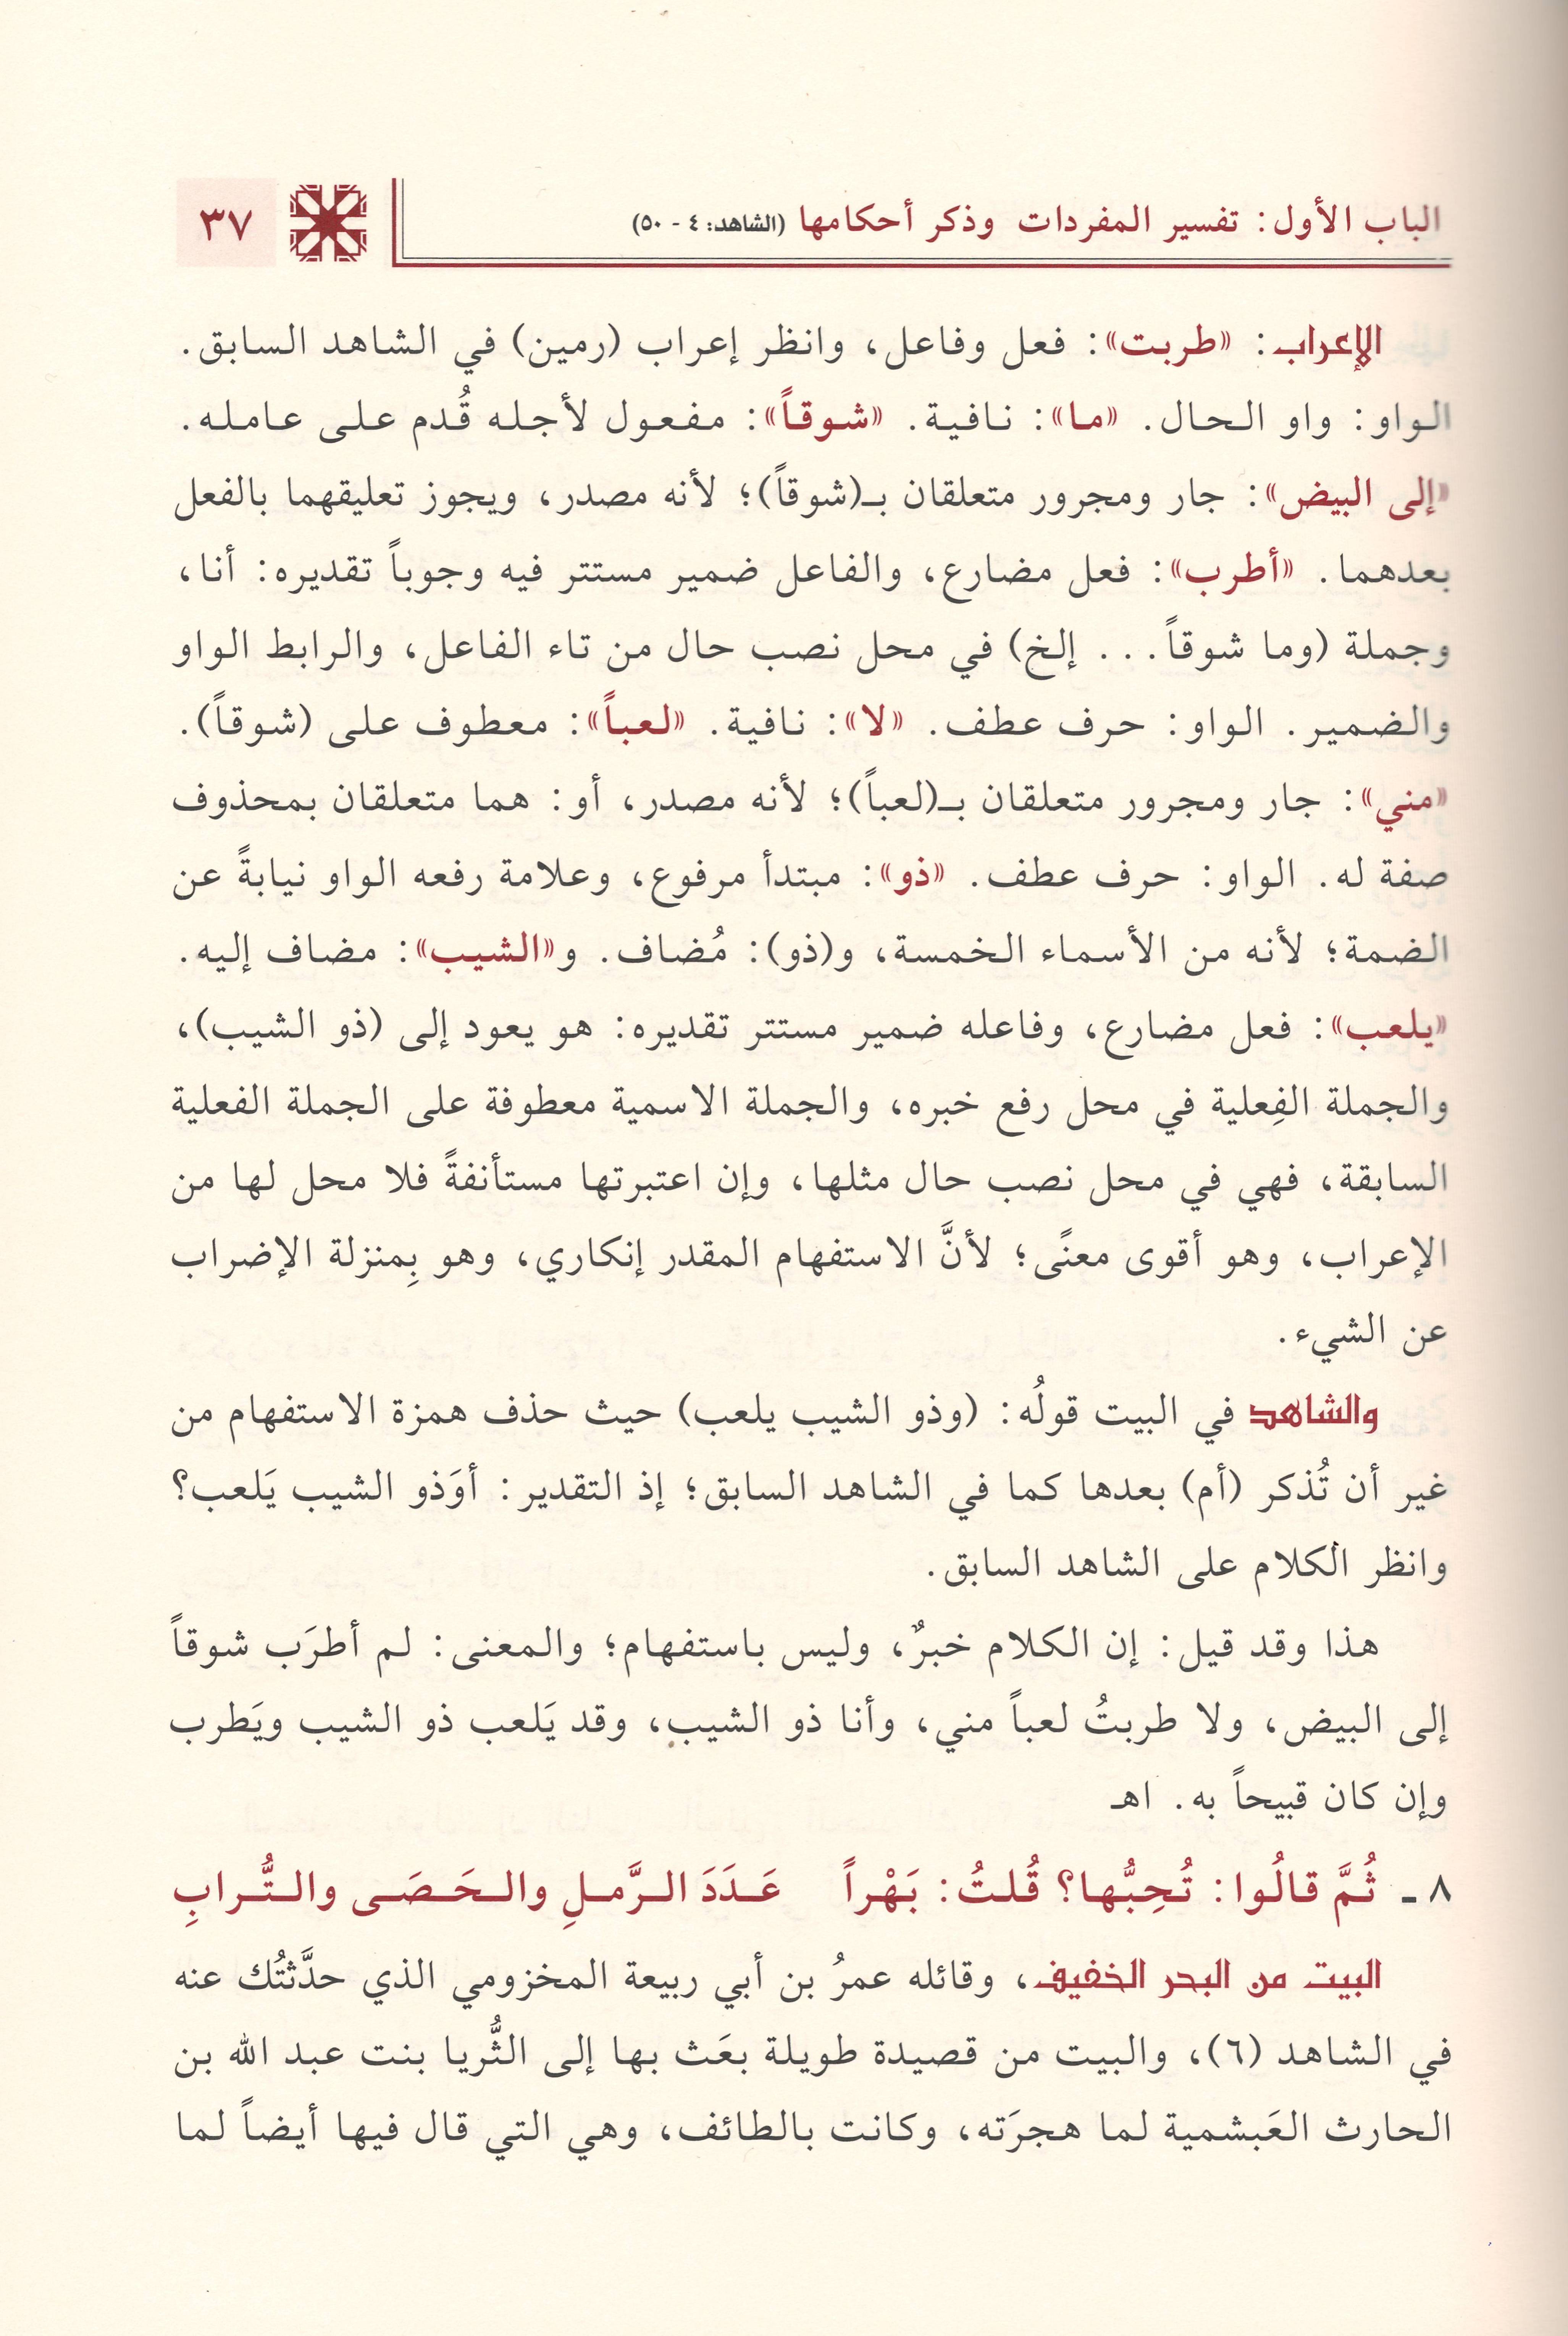 الباب الأول: تفسير المفردات وذكر أحكامها (الشاهد: ٤ - ٥٠)
٣٧
الإعراب: «طربت»: فعل وفاعل، وانظر إعراب (رمين) في الشاهد السابق.
الواو: واو الحال. «ما»: نافية. «شوقاً»: مفعول لأجله قُدم على عامله.
«إلى البيض»: جار ومجرور متعلقان بـ(شوقاً)؛ لأنه مصدر، ويجوز تعليقهما بالفعل
بعدهما. «أطرب»: فعل مضارع، والفاعل ضمير مستتر فيه وجوباً تقديره: أنا،
وجملة (وما شوقاً... إلخ) في محل نصب حال من تاء الفاعل، والرابط الواو
والضمير. الواو: حرف عطف. «لا»: نافية. «لعباً»: معطوف على (شوقاً).
«مني»: جار ومجرور متعلقان بـ(لعباً)؛ لأنه مصدر، أو: هما متعلقان بمحذوف
صفة له. الواو: حرف عطف. «ذو»: مبتدأ مرفوع، وعلامة رفعه الواو نيابةً عن
الضمة؛ لأنه من الأسماء الخمسة، و(ذو): مُضاف. و«الشيب»: مضاف إليه.
«يلعب»: فعل مضارع، وفاعله ضمير مستتر تقديره: هو يعود إلى (ذو الشيب)،
والجملة الفِعلية في محل رفع خبره، والجملة الاسمية معطوفة على الجملة الفعلية
السابقة، فهي في محل نصب حال مثلها، وإن اعتبرتها مستأنفةً فلا محل لها من
الإعراب، وهو أقوى معنًى؛ لأنَّ الاستفهام المقدر إنكاري، وهو بِمنزلة الإضراب
عن الشيء.
والشاهد في البيت قولُه: (وذو الشيب يلعب) حيث حذف همزة الاستفهام من
غير أن تُذكر (أم) بعدها كما في الشاهد السابق؛ إذ التقدير: أوَذو الشيب يَلعب؟
وانظر الكلام على الشاهد السابق.
هذا وقد قيل: إن الكلام خبرٌ، وليس باستفهام؛ والمعنى: لم أطرَب شوقاً
إلى البيض، ولا طربتُ لعباً مني، وأنا ذو الشيب، وقد يَلعب ذو الشيب ويَطرب
وإن كان قبيحاً به. اهـ
٨ ـ ثُمَّ قالُوا: تُحِبُّها؟ قُلتُ: بَهْراً عَدَدَ الرَّملِ والحَصَى والتُّرابِ
البيت من البحر الخفيف، وقائله عمرُ بن أبي ربيعة المخزومي الذي حدَّثتُك عنه
في الشاهد (٦)، والبيت من قصيدة طويلة بعَث بها إلى الثُّريا بنت عبد الله بن
الحارث العَبشمية لما هجرَته، وكانت بالطائف، وهي التي قال فيها أيضاً لما